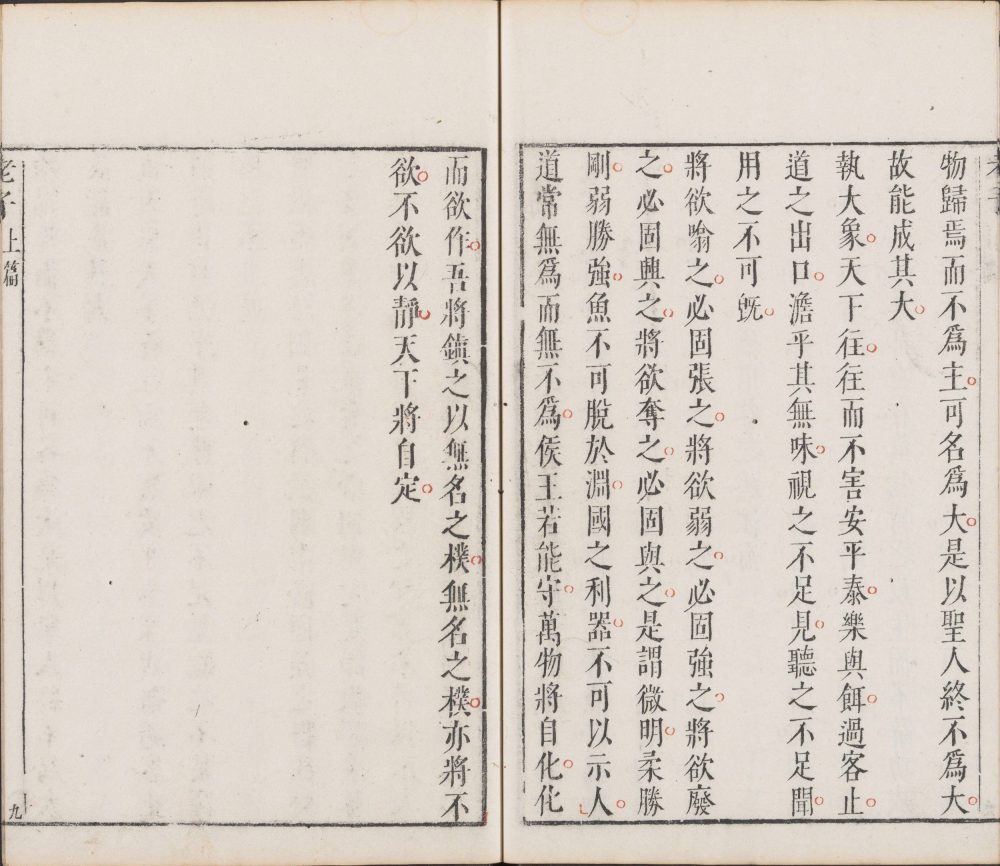 物歸焉而不爲主可名爲大是以聖人終不爲大
故能成其大
執大象天下往往而不害安平泰樂與餌過客止
道之出口澹乎其無味視之不足見聽之不足聞
用之不可旣
將欲噏之必固張之將欲弱之必固強之將欲廢
之必固興之將欲奪之必固與之是謂微明柔勝
剛弱勝強魚不可脫於淵國之利器不可以示人
道常無爲而無不爲侯王若能守萬物將自化化
而欲作吾將鎮之以無名之樸無名之樸亦將不
欲不欲以靜天下將自定
老子上篇
九